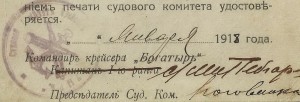 ніемъ печати судового комитета удостовѣ-
ряется.
„ " Января 1918 года.
Командиръ крейсера „Богатырь"
Капитанъ 1-го ранга
Предсѣдатель Суд. Ком.